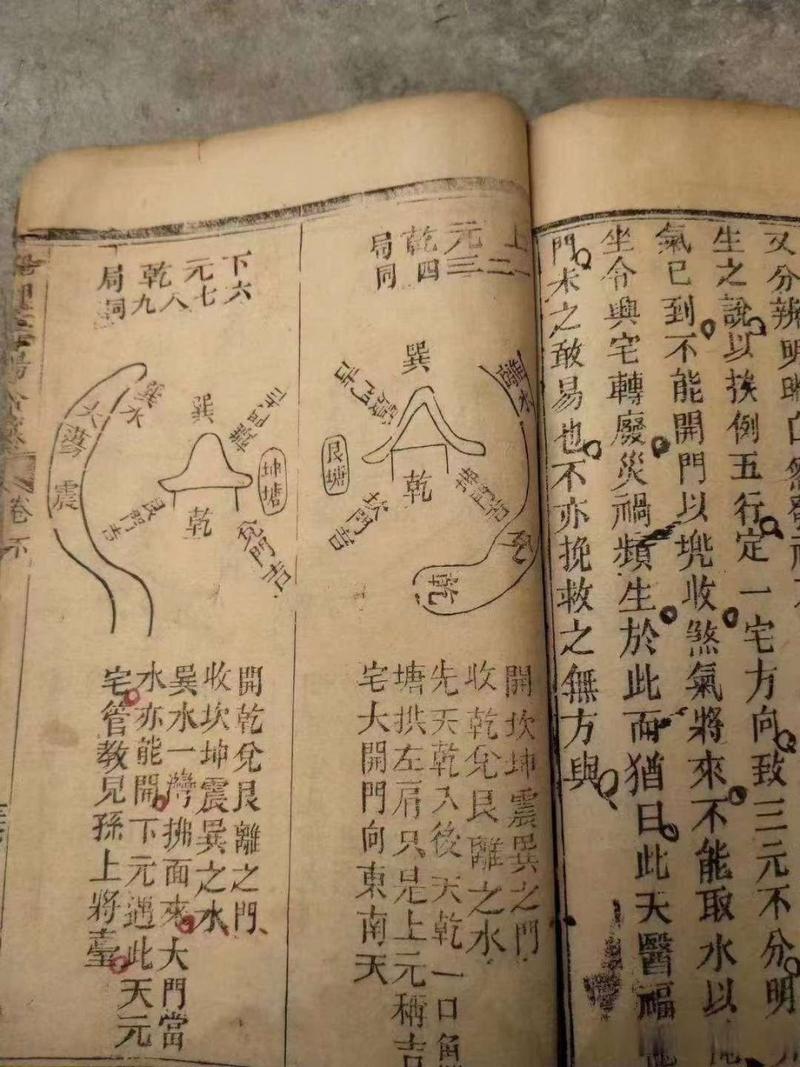 又分辨明
生之說以挨例五行定一宅方向致三元不分明
氣已到不能開門以兠收煞氣將來不能取水以
坐令興宅轉廢災禍頻生於此而猶曰此天醫福
門未之敢易也不亦挽救之無方與
上一二
元三
乾四
局同
離水
巽
震門吉
艮塘
乾
坤門吉
坎門吉
乾
開坎坤震巽之門
收乾兌艮離之水
先天乾入後天乾一口
塘拱左肩只是上元稱吉
宅大開門向東南天
下六
元七
乾八九
局同
離門吉
巽
巽水
大灣
震
坤塘
艮門吉
乾
兌門吉
開乾兌艮離之門
收坎坤震巽之水
巽水一灣拂面來大門當
水亦能開下元遇此天元
宅管教兒孫上將臺
卷下